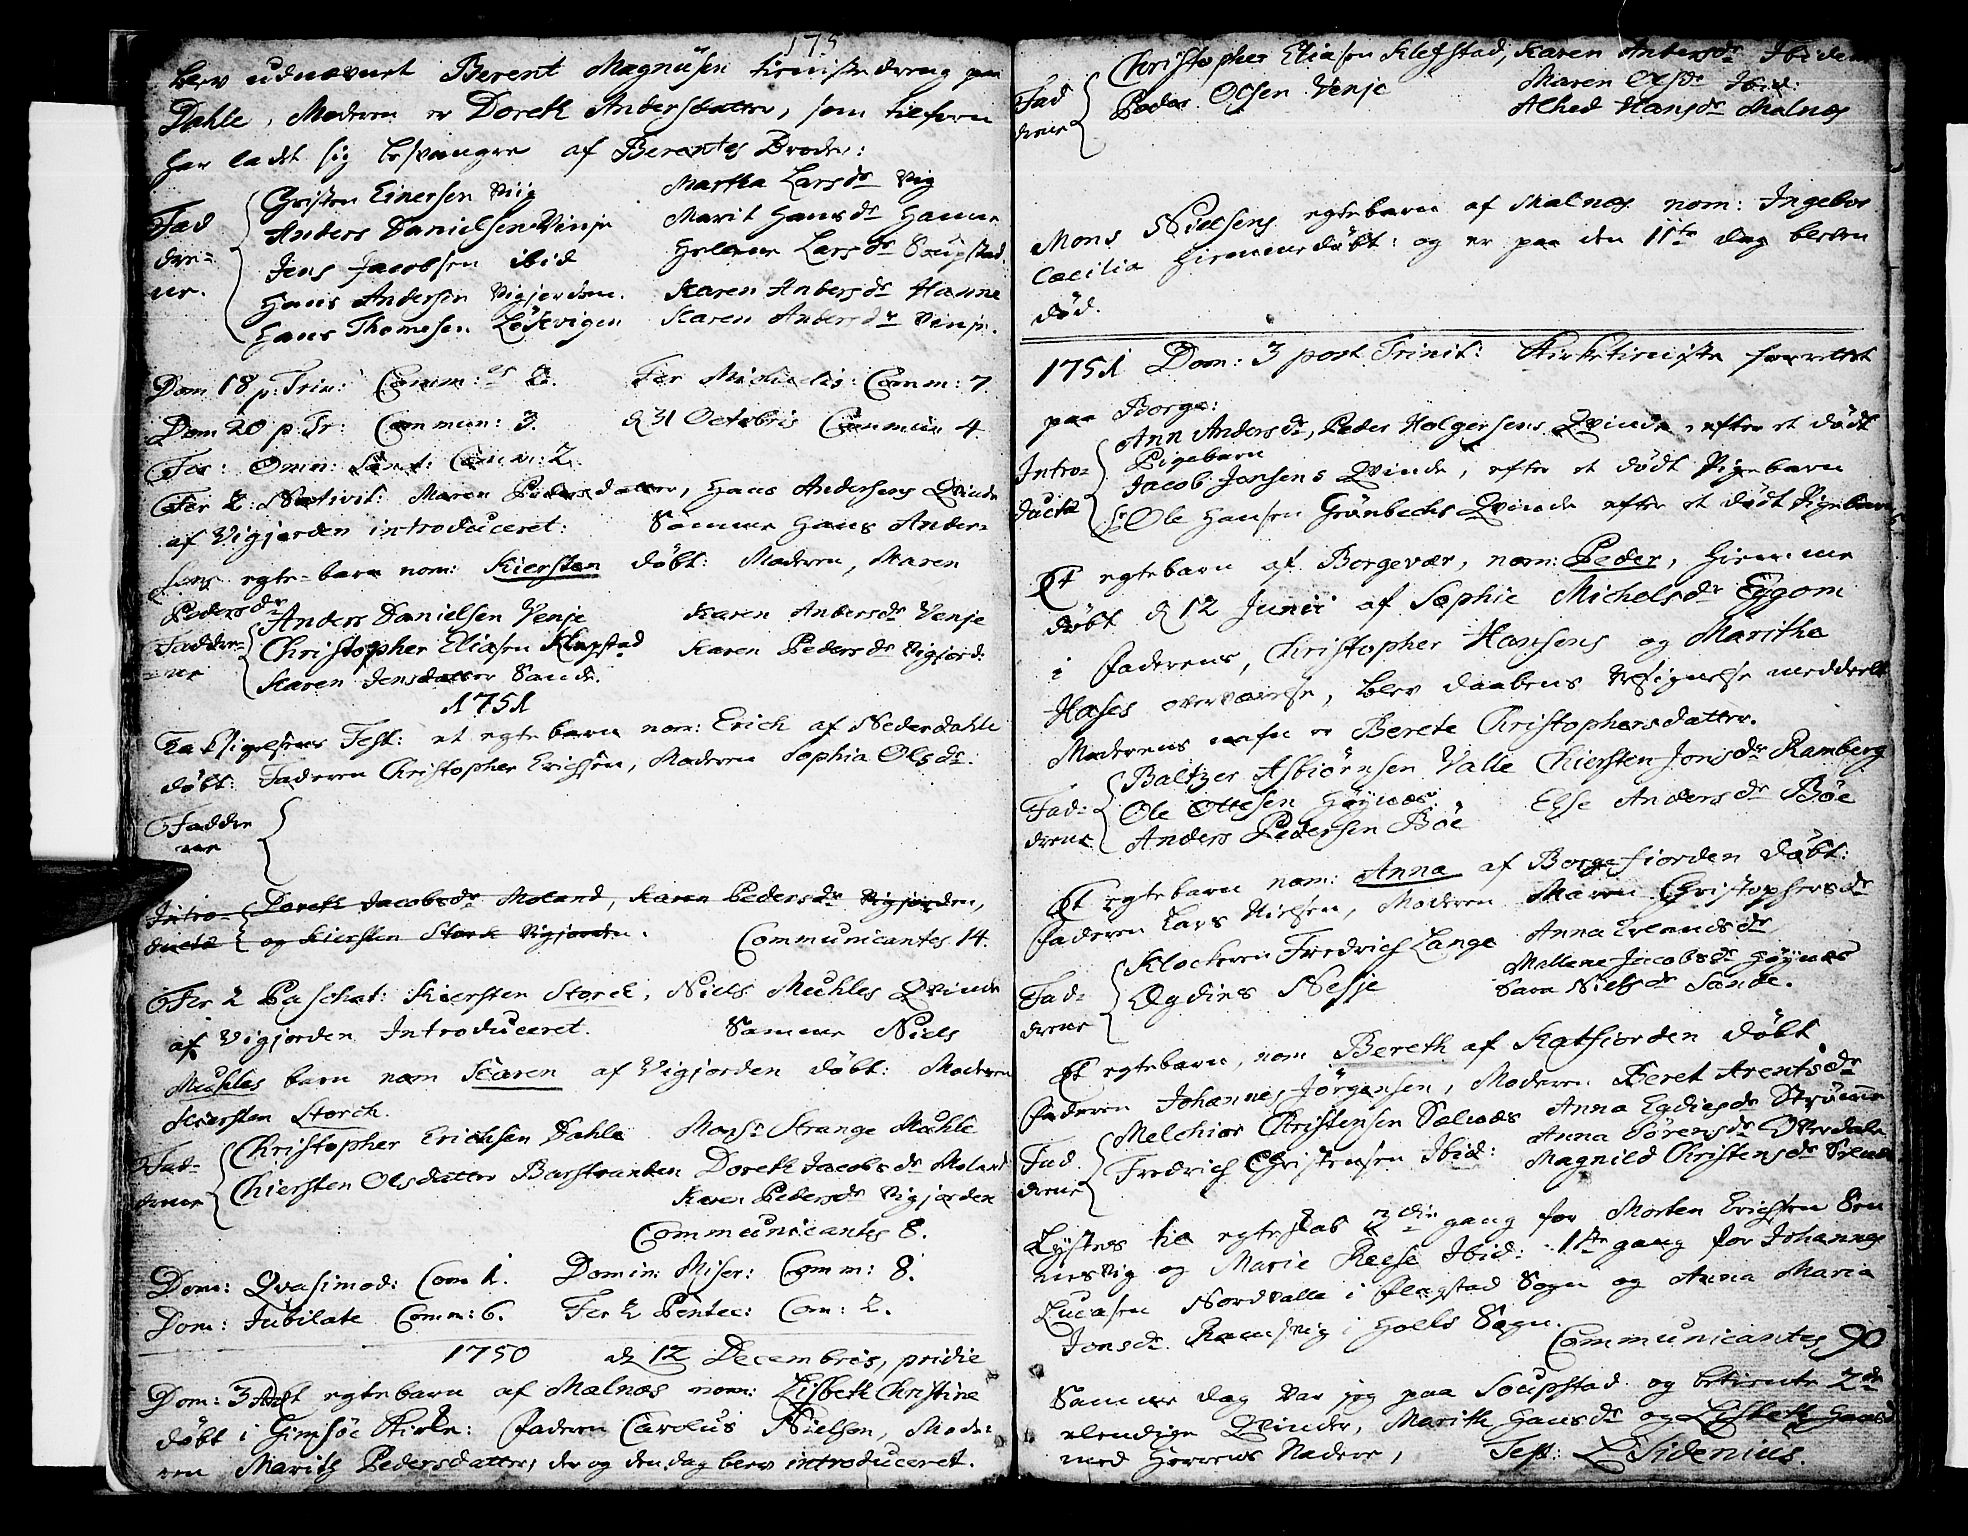 175
blev udnævnt Berent Magnusen tieniste dreng paa
Dahle, Moderen er Doreth Andersdatter, som tilforn
har ladet sig besvangre af Berentes Broder:
Christen Einersen Viig Martha Larsdr Vig
Fad Anders Danielsen Vinje Marit Hansdr Hanne
dre- Jens Jacobsen ibid Helena Larsdr Soupstad
ne. Hans Andersen Vigjorden. Karen Andersdr Hanne
Hans Thomesen Löstvigen Karen Andersdr Vinje.
Dom 18 p. Trin: Comm: 2. Fer Michaelis: Comm: 7
Dom 20 p: Tr: Commun: 3. d 31 Octobris Commun 4.
Fer: Omn: Sanct: Comm: 2.
Fer 2: Nativit: Maren Pedersdatter, Hans Andersens Qvinde
af Vigjorden introduceret: Samme Hans Ander-
sens egte-barn nom: Kiersten döbt: Moderen, Maren
Pedersdr
Anders Danielsen Venje Karen Andersdr Venje
Faddere- Christopher Eliasen Klepstad Karen Pedersdr Vigjord:
ne Karen Jensdatter Sande.
1751
Taksigelsens Fest: et egte barn nom: Erich af Nederdahle
döbt: Faderen Christopher Erichsen, Moderen Sophia Olsdr.
Faddre
ne
Intro- Doreth Jacobsdr Moland, Karen Pedersdr Vigjorden,
ducta og Kiersten Storck Vigjorden. Communicantes 14.
Fer 2 Paschat: Kiersten Storck, Niels Muhles Qvinde
af Vigjorden Introduceret. Samme Niels
Muhles barn nom Karen af Vigjorden döbt: Moderen
Kiersten Storck.
Christopher Erichsen Dahle Monsr Strange Muhle
Fad- Chiersten Olsdatter Barstranden Doreth Jacobsdr Moland
drene Karen Pedersdr Vigjorden
Communicantes 8.
Dom: Qvasimod: Com 1. Domin: Miser: Comm: 8.
Dom: Jubilate Comm: 6. Fer 2 Pentec: Com: 2.
1750 d 12 Decembris, pridie
Dom: 3 Adv et egtebarn af Malnæs nom: Lisbeth Christine
döbt i Gimsöe Kirke: Faderen Carolus Nielsen, Mode-
ren Marith Pedersdatter, der og den dag blev introduceret.
Christopher Eliasen Klefstad, Karen Andersdr Ibidem
Fad Peder Olsen Venje Maren Olsdr Ibid:
drene Alhed Hansdr Malnæs
Mons Nielsens egtebarn af Malnæs nom: Ingebor
Cæcilia hiemmedöbt: og er paa den 11te dag bleven
död.
1751 Dom: 3 post Trinit: Kirketieniste forrettet
paa Borge:
Ann Andersdr, Peder Holgersens Qvinde, efter et dödt
Intro- Pigebarn
Jacob Jonsens Qvinde, efter et dödt Pigebarn
ducta Ole Hansen Grönbechs Qvinde efter et dödt Pigebarn
Et egtebarn af Borgevær, nom: Peder, hiemme
döbt d 12 Junii af Sophie Michelsdr Eggom
i Faderens, Christopher Hansens og Maritha
Hases overværelse, blev daabens Velsignelse meddeelt
Moderens nafn er Berete Christophersdatter.
Baltzer Asbiörnsen Valle Chiersten Jonsdr Ramberg
Fad- Ole Ottesen Höynæs Else Andersdr Böe
drene Anders Pedersen Böe
Et egtebarn nom: Anna af Borgefiorden döbt:
Faderen Lars Nielsen, Moderen Maren Christophersdr
Klockeren Fredrich Lange Anna Erlandsdr
Fad- Mallene Jacobsdr Höynæs
drene Ægdius Nesje Sara Nielsdr Sande.
Et egtebarn, nom Bereth af Katfiorden döbt
Faderen Johannes Jörgensen, Moderen Beret Arentsdr
Fad Melchior Christensen Salnæs Anna Egdiesdr Strömme
Anna Sörensdr Overdale
drene Fredrich Christensen Ibid: Magnild Christensdr
Lystes til egteskab 3die gang for Morten Erichsen Sen
nesvig og Marie Reese Ibid: 1ste gang for Johannes
Lucasen Nordvalle i Flagstad Sogn og Anna Maria
Jonsdr Ramsvig i Hols Sogn.
Communicantes 90
Samme dag var jeg paa Soupstad og betiente 2de
elendige Qvinder, Marith Hansdr og Lisbeth Hansd
med Herrens Nadere, Test: L Sidenius.